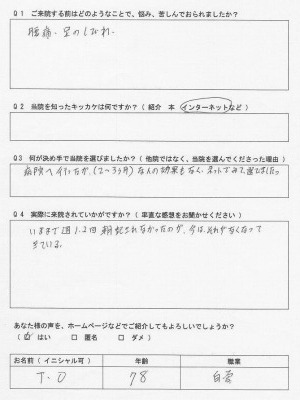 Q1 ご来院する前はどのようなことで、悩み、苦しんでおられましたか？
腰痛、足のしびれ。
Q2 当院を知ったキッカケは何ですか？（紹介 本 インターネットなど）
Q3 何が決め手で当院を選びましたか？（他院ではなく、当院を選んでくださった理由）
病院へ行ったが、(2〜3ヶ月) なんの効果もなく、ネットでみて
Q4 実際に来院されていかがですか？（率直な感想をお聞かせください）
いままで週1.2回
今は、それがなくなって
きている。
あなた様の声を、ホームページなどでご紹介してもよろしいでしょうか？
（ ☑ はい □ 匿名 □ ダメ ）
お名前（イニシャル可） 年齢 職業
T.O 78 自営